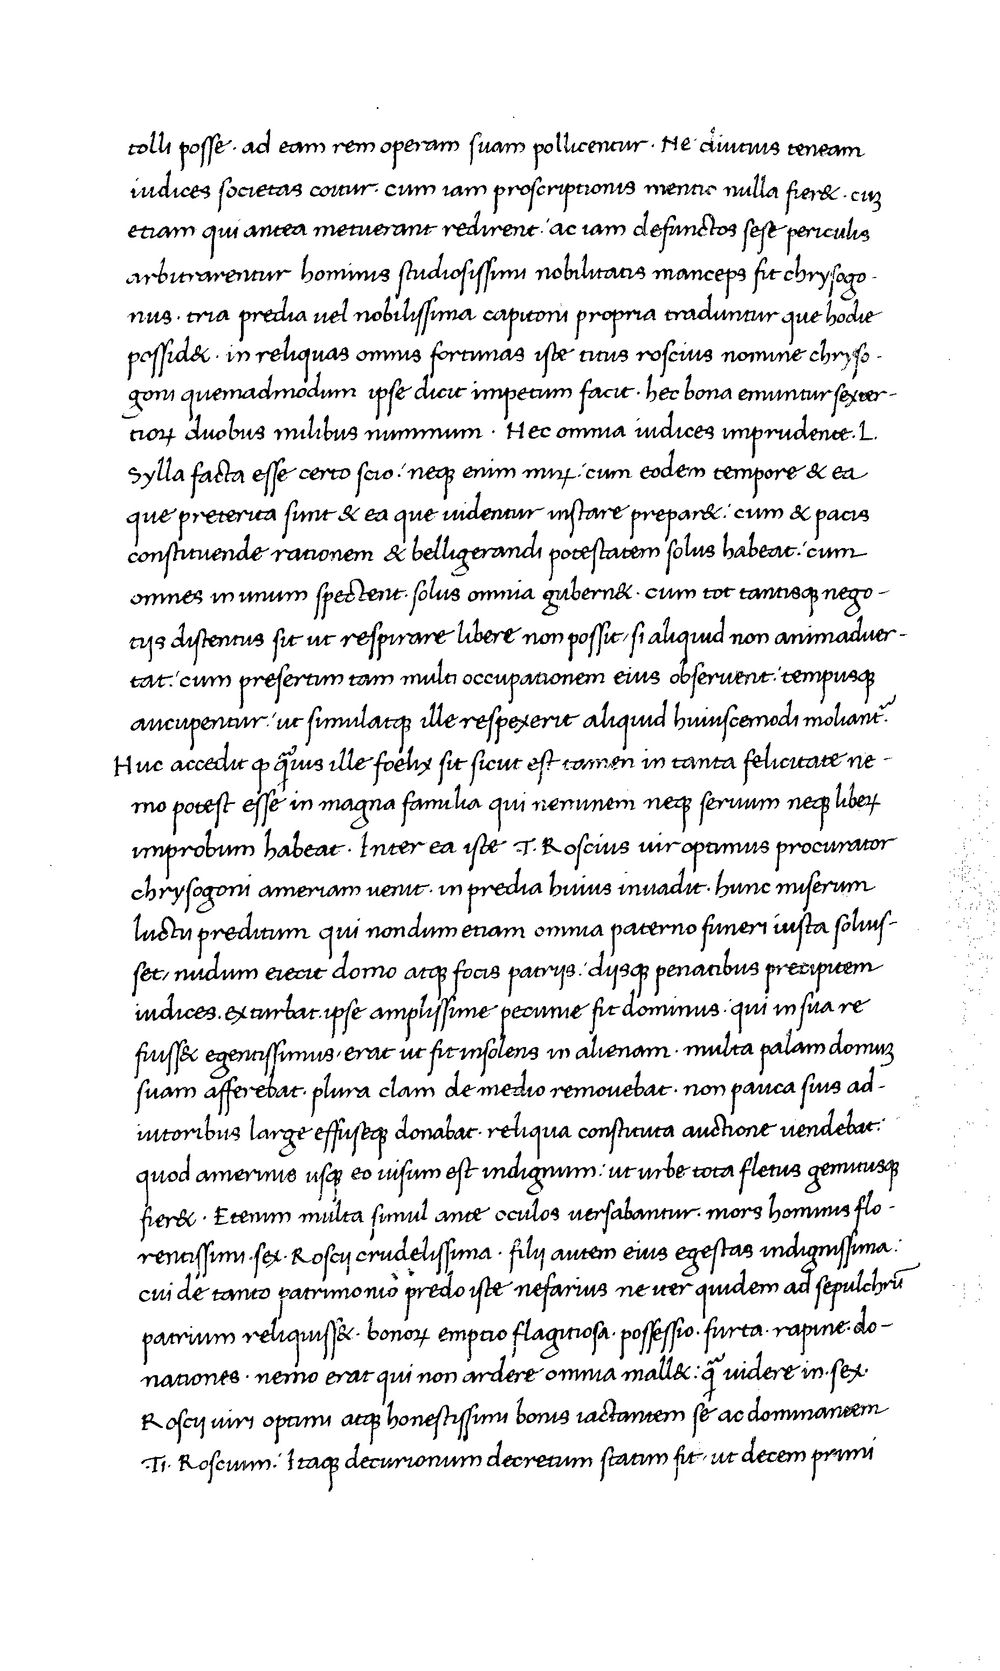 tolli posse · ad eam rem operam suam pollicentur · Ne diutius teneam
iudices societas coitur · cum iam proscriptionis mentio nulla fier& · cuʒ
etiam qui antea metuerant redirent : ac iam defunctos sese periculis
arbitrarentur hominis studiosissimi nobilitatis manceps fit chrysogo-
nus · tria predia uel nobilissima capitoni propria traduntur que hodie
possid& · in reliquas omnis fortunas iste titus roscius nomine chryso-
goni quemadmodum ipse dicit impetum facit · hec bona emuntur sexter-
tioꝝ duobus milibus nummum · Hec omnia iudices imprudente · L.
Sylla facta esse certo scio : neqꝫ enim miꝝ : cum eodem tempore & ea
que preterita sunt & ea que uidentur instare prepar& : cum & pacis
constituende rationem & belligerandi potestatem solus habeat : cum
omnes in unum spectent · solus omnia gubern& · cum tot tantisqꝫ nego-
tijs distentus sit ut respirare libere non possit / si aliquid non animaduer-
tat : cum presertim tam multi occupationem eius obseruent : tempusqꝫ
aucupentur : ut simulatqꝫ ille respexerit aliquid huiuscemodi moliant᷑.
Huc accedit ꝙ q̃uis ille foelix sit sicut est tamen in tanta felicitate ne-
mo potest esse in magna familia qui neminem neqꝫ seruum neqꝫ libeꝝ
improbum habeat · Inter ea iste ·T. Roscius uir optimus procurator
chrysogoni ameriam uenit · in predia huius inuadit · hunc miserum
luctu preditum qui nondum etiam omnia paterno funeri iusta soluis-
set / nudum eiecit domo atqꝫ focis patrijs : dijsqꝫ penatibus precipitem
iudices · exturbat · ipse amplissime pecunie fit dominus · qui in sua re
fuiss& egentissimus · erat ut fit insolens in alienam · multa palam domuʒ
suam afferebat · plura clam de medio remouebat · non pauca suis ad-
iutoribus large effuseqꝫ donabat · reliqua constituta auctione uendebat :
quod amerinis usqꝫ eo uisum est indignum : ut urbe tota fletus gemitusqꝫ
fier& · Etenim multa simul ante oculos uersabantur · mors hominis flo-
rentissimi · sex · Roscij crudelissima · filij autem eius egestas indignissima :
cui de tanto patrimonio predo iste nefarius ne iter quidem ad sepulchrū
patrium reliquiss& · bonoꝝ emptio flagitiosa · possessio · furta · rapine · do-
nationes · nemo erat qui non ardere omnia mall& : q̃ uidere in · sex ·
Roscij uiri optimi atqꝫ honestissimi bonis iactantem se ac dominantem
·Ti· Roscium : Itaqꝫ decurionum decretum statim fit · ut decem primi